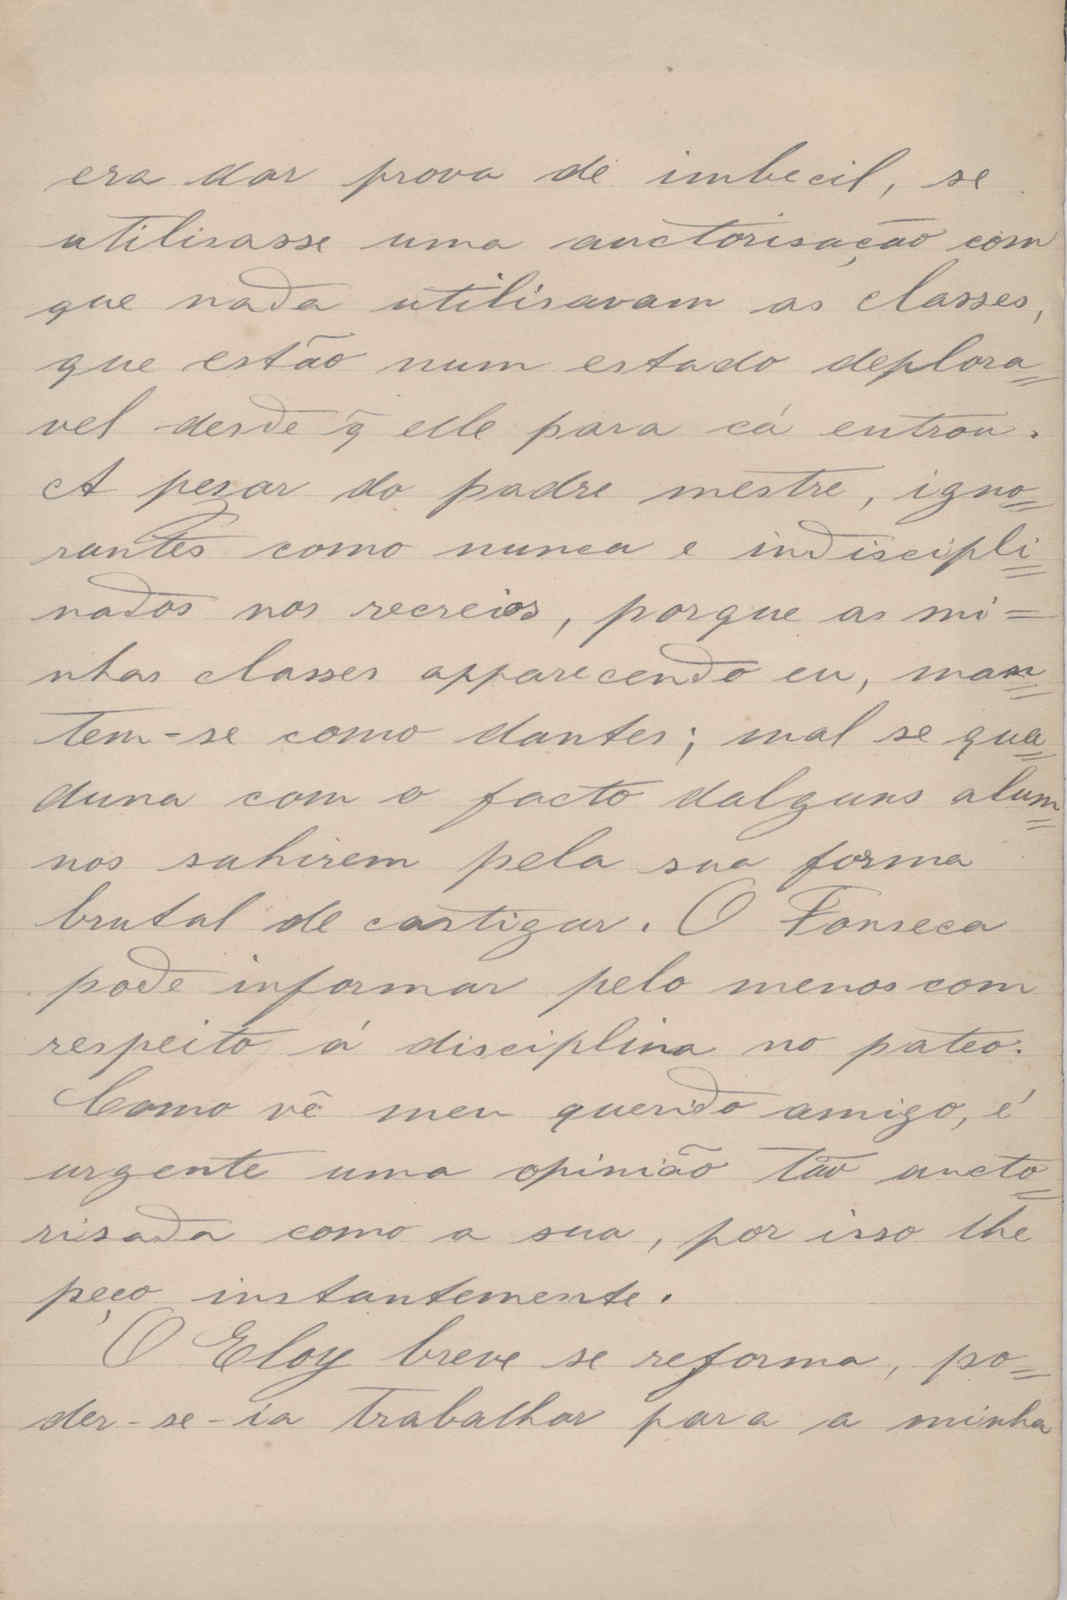 era dar prova de imbecil, se
utilisasse uma auctorisação com
que nada utilisavam as classes,
que estão num estado deplora=
vel desde q̃ elle para cá entrou.
A pezar do padre mestre, igno=
rantes como nunca e indiscipli=
nados nos recreios, porque as mi=
nhas classes apparecendo eu, man=
tem-se como dantes; mal se qua=
duna com o facto dalguns alum=
nos sahirem pela sua forma
brutal de castigar. O Fonseca
pode informar pelo menos com
respeito á disciplina no pateo.
Como vê meu querido amigo, é
urgente uma opinião tão aucto=
risada como a sua, por isso lhe
peço instantemente.
O Eloy breve se reforma, po=
der-se-ia trabalhar para a minha